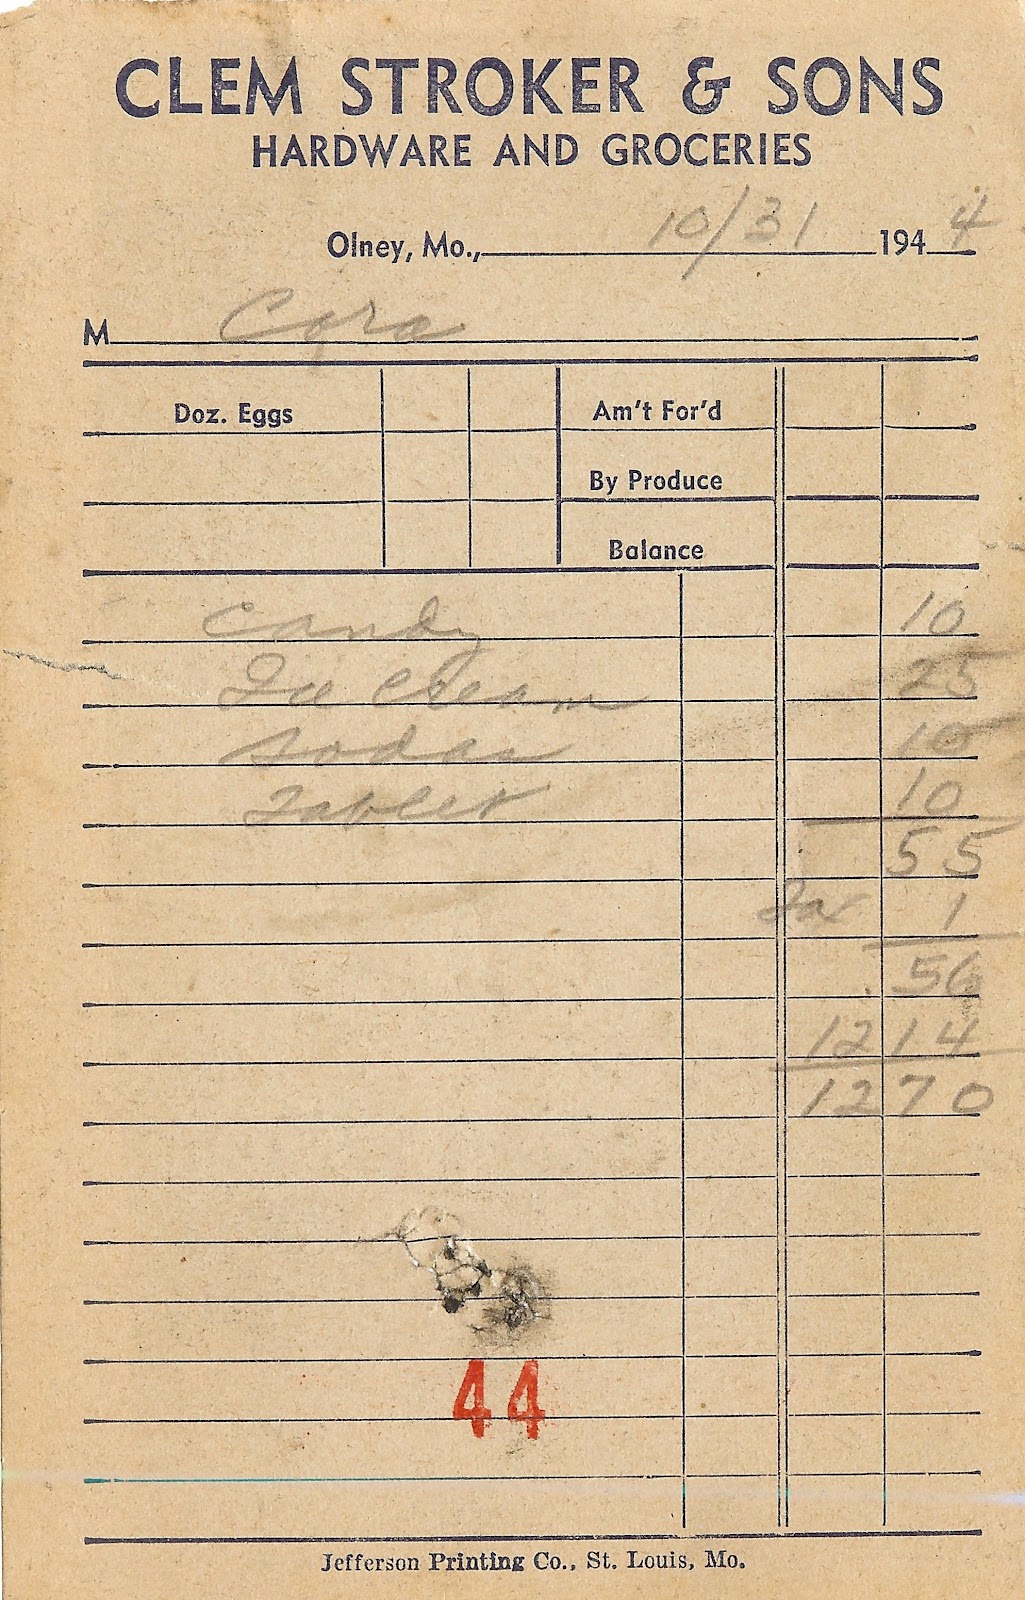 CLEM STROKER & SONS
HARDWARE AND GROCERIES
Olney, Mo., 10/31 1944
M Cora
Doz. Eggs Am't For'd
By Produce
Balance
Candy 10
Ice Cream 25
Sodas 10
Tablet 10
55
Tax 1
.56
12 14
12 70
44
Jefferson Printing Co., St. Louis, Mo.